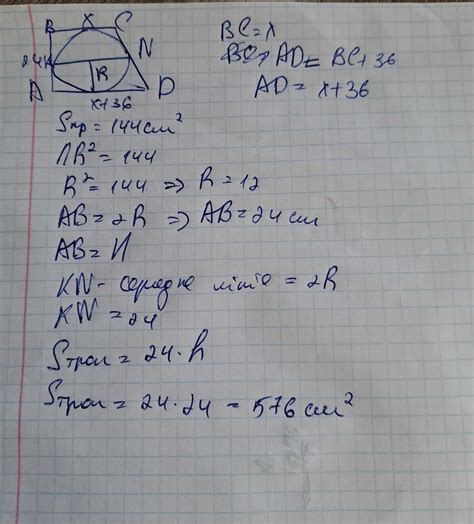 B X C
24 K N
R
A D
x+36
BC = x
AD = BC + 36
AD = x + 36
Sкр = 144 см²
ПR² = 144
R² = 144 => R = 12
AB = 2R => AB = 24 см
AB = H
KN - середне лініє = 2R
KN = 24
Sтрап = 24 · h
Sтрап = 24 · 24 = 576 см²